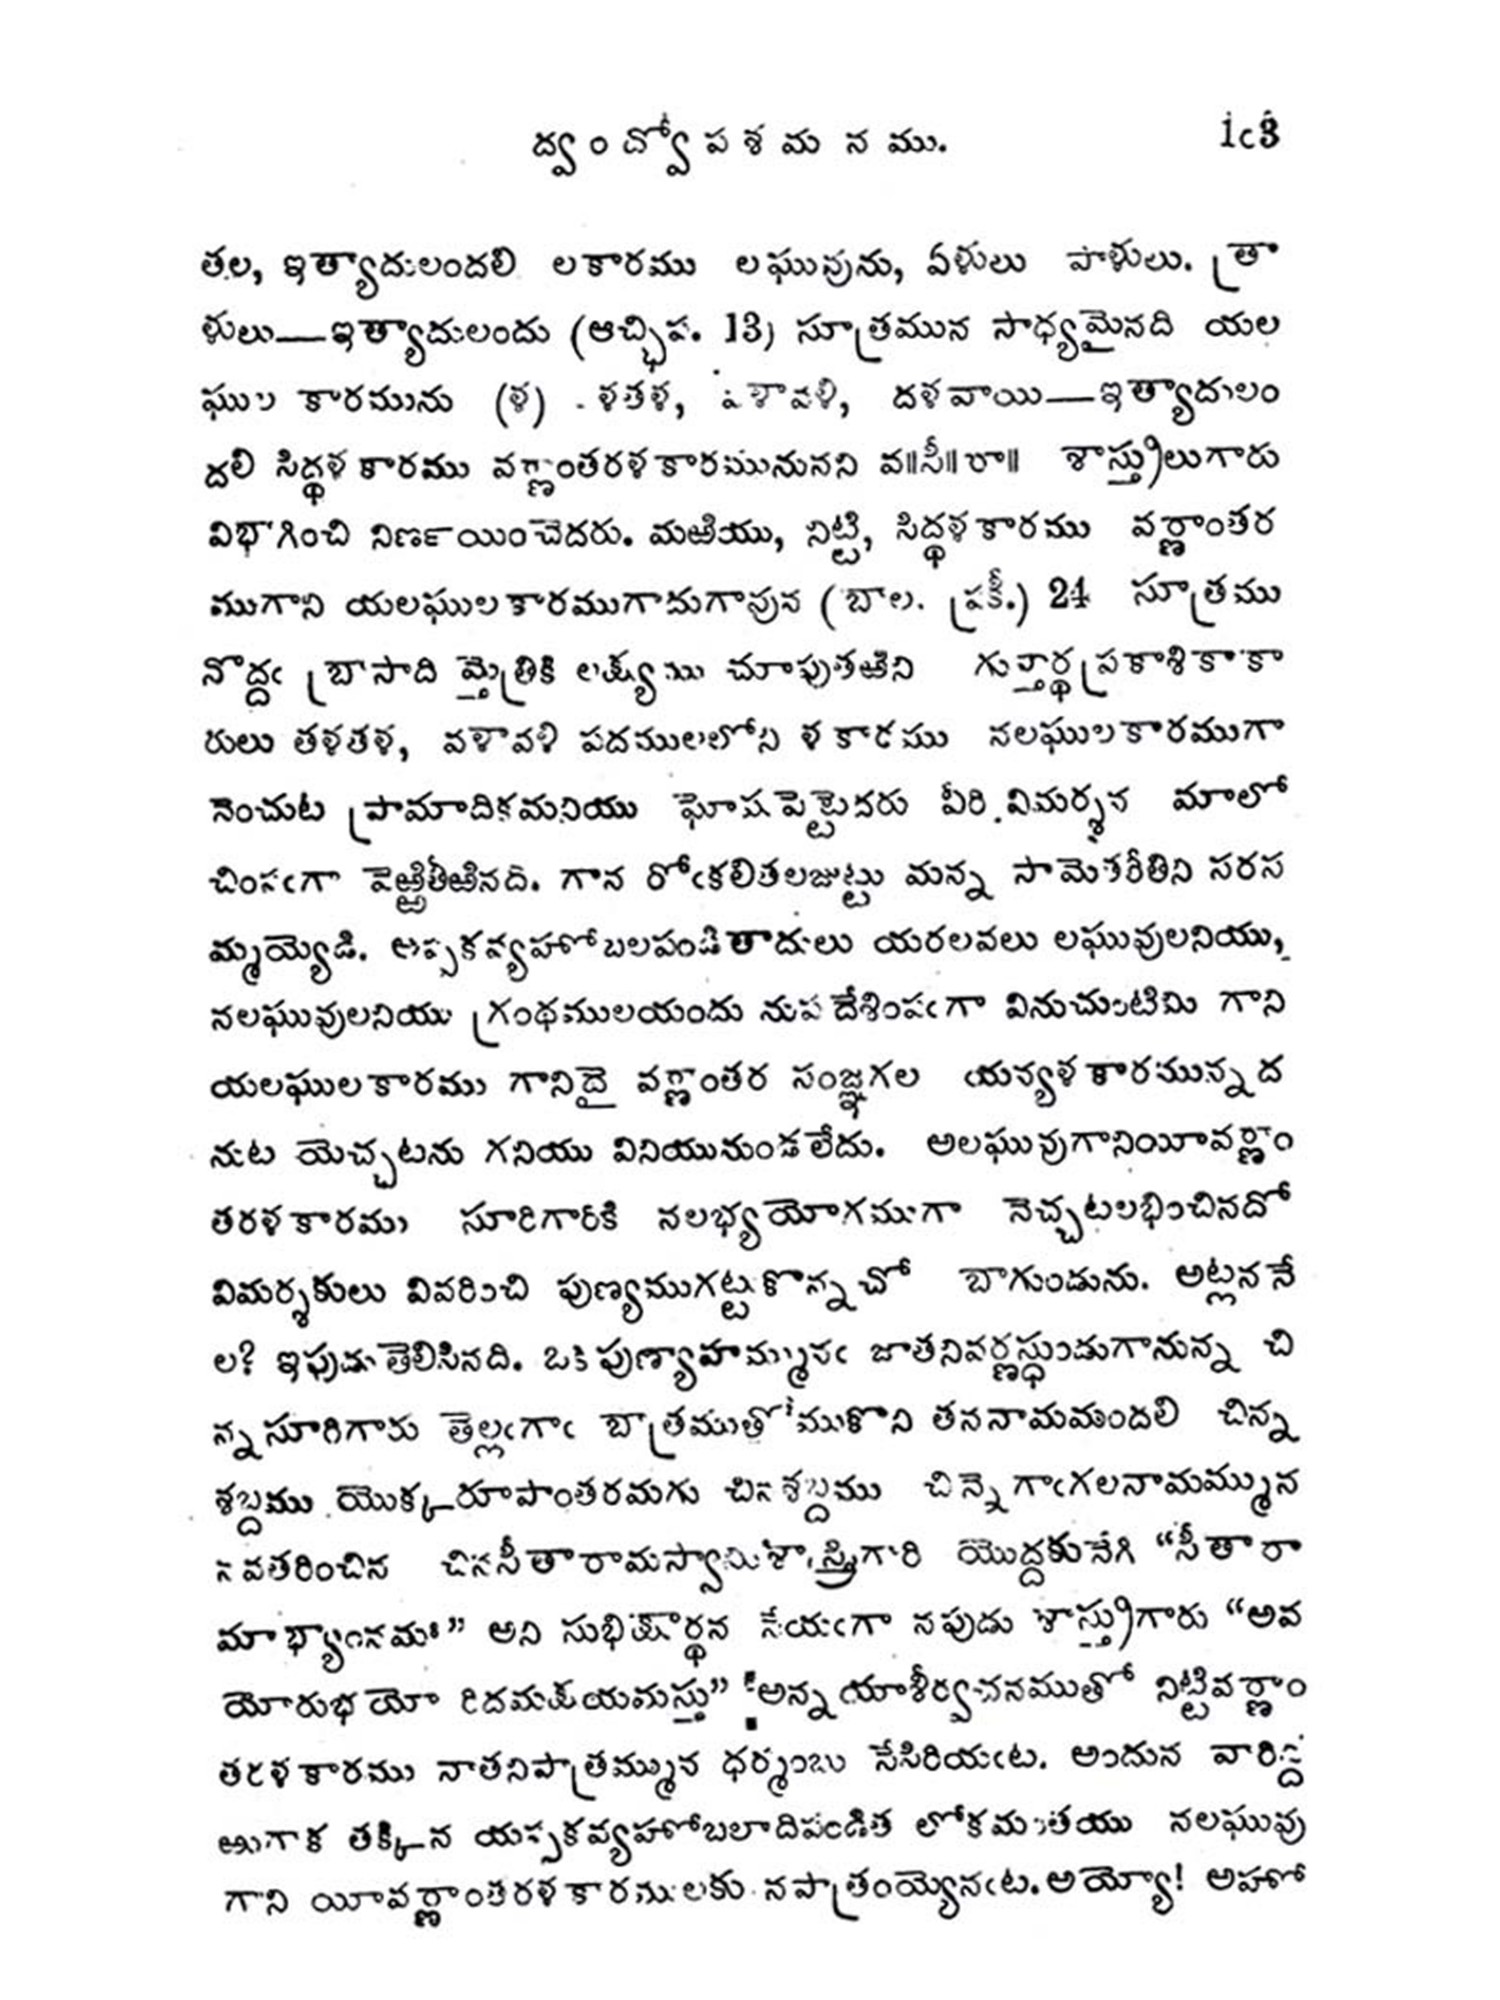 ద్వంద్వోపశమనము.
తల, ఇత్యాదులందలి లకారము లఘువును, ఏళులు పాళులు. త్రా
ళులు—ఇత్యాదులందు (ఆచ్ఛిప. 13) సూత్రమున సాధ్యమైనది యల
ఘుల కారమును (ళ) ళతళ, దళవాయి—ఇత్యాదులం
దలి సిద్ధళకారము వర్ణాంతరళకారమునునని వ॥సీ॥రా॥ శాస్త్రులుగారు
విభాగించి నిర్ణయించెదరు. మఱియు, నిట్టి, సిద్ధళకారము వర్ణాంతర
ముగాని యలఘులకారముగాదుగావున (బాల. ప్రకీ.) 24 సూత్రము
నొద్దఁ బ్రాసాది మైత్రికి లక్ష్యము చూపుతఱిని గుప్తార్థప్రకాశికాకా
రులు తళతళ, వళావళి పదములలోని ళకారము నలఘులకారముగా
నెంచుట ప్రామాదికమనియు ఘోషపెట్టెదరు వీరి విమర్శన మాలో
చింపఁగా వెఱ్ఱితీఱినది. గాన రోఁకలితలజుట్టు మన్న సామెతరీతిని సరస
మ్మయ్యెడి. అప్పకవ్యహోబలపండితాదులు యరలవలు లఘువులనియు,
నలఘువులనియు గ్రంథములయందు నుపదేశింపఁగా వినుచుంటిమి గాని
యలఘులకారము గానిదై వర్ణాంతర సంజ్ఞగల యన్యళకారమున్నద
నుట యెచ్చటను గనియు వినియునుండలేదు. అలఘువుగానియీవర్ణాం
తరళకారము సూరిగారికి నలభ్యయోగముగా నెచ్చటలభించినదో
విమర్శకులు వివరించి పుణ్యముగట్టుకొన్నచో బాగుండును. అట్లననే
ల? ఇపుడు తెలిసినది. ఒకపుణ్యాహమ్మునఁ జాతనివర్ణస్థుండుగానున్న చి
న్నసూరిగారు తెల్లఁగాఁ బాత్రముతోముకొని తననామమందలి చిన్న
శబ్దము యొక్క రూపాంతరమగు చినశబ్దము చిన్నెగాఁగలనామమ్మున
నవతరించిన చినసీతారామస్వామిశాస్త్రిగారి యొద్దకునేగి “సీతారా
మాభ్యాంనమః” అని సుభిక్షార్థన సేయఁగా నపుడు శాస్త్రిగారు “అవ
యోరుభయో రిదమక్షయమస్తు” అన్న యాశీర్వచనముతో నిట్టివర్ణాం
తరళకారము నాతనిపాత్రమ్మున ధర్మంబు సేసిరియఁట. అందున వారిద్ద
ఱుగాక తక్కిన యప్పకవ్యహోబలాదిపండిత లోకమంతయు నలఘువు
గాని యీవర్ణాంతరళకారములకు నపాత్రంయ్యెనఁట. అయ్యో! అహో